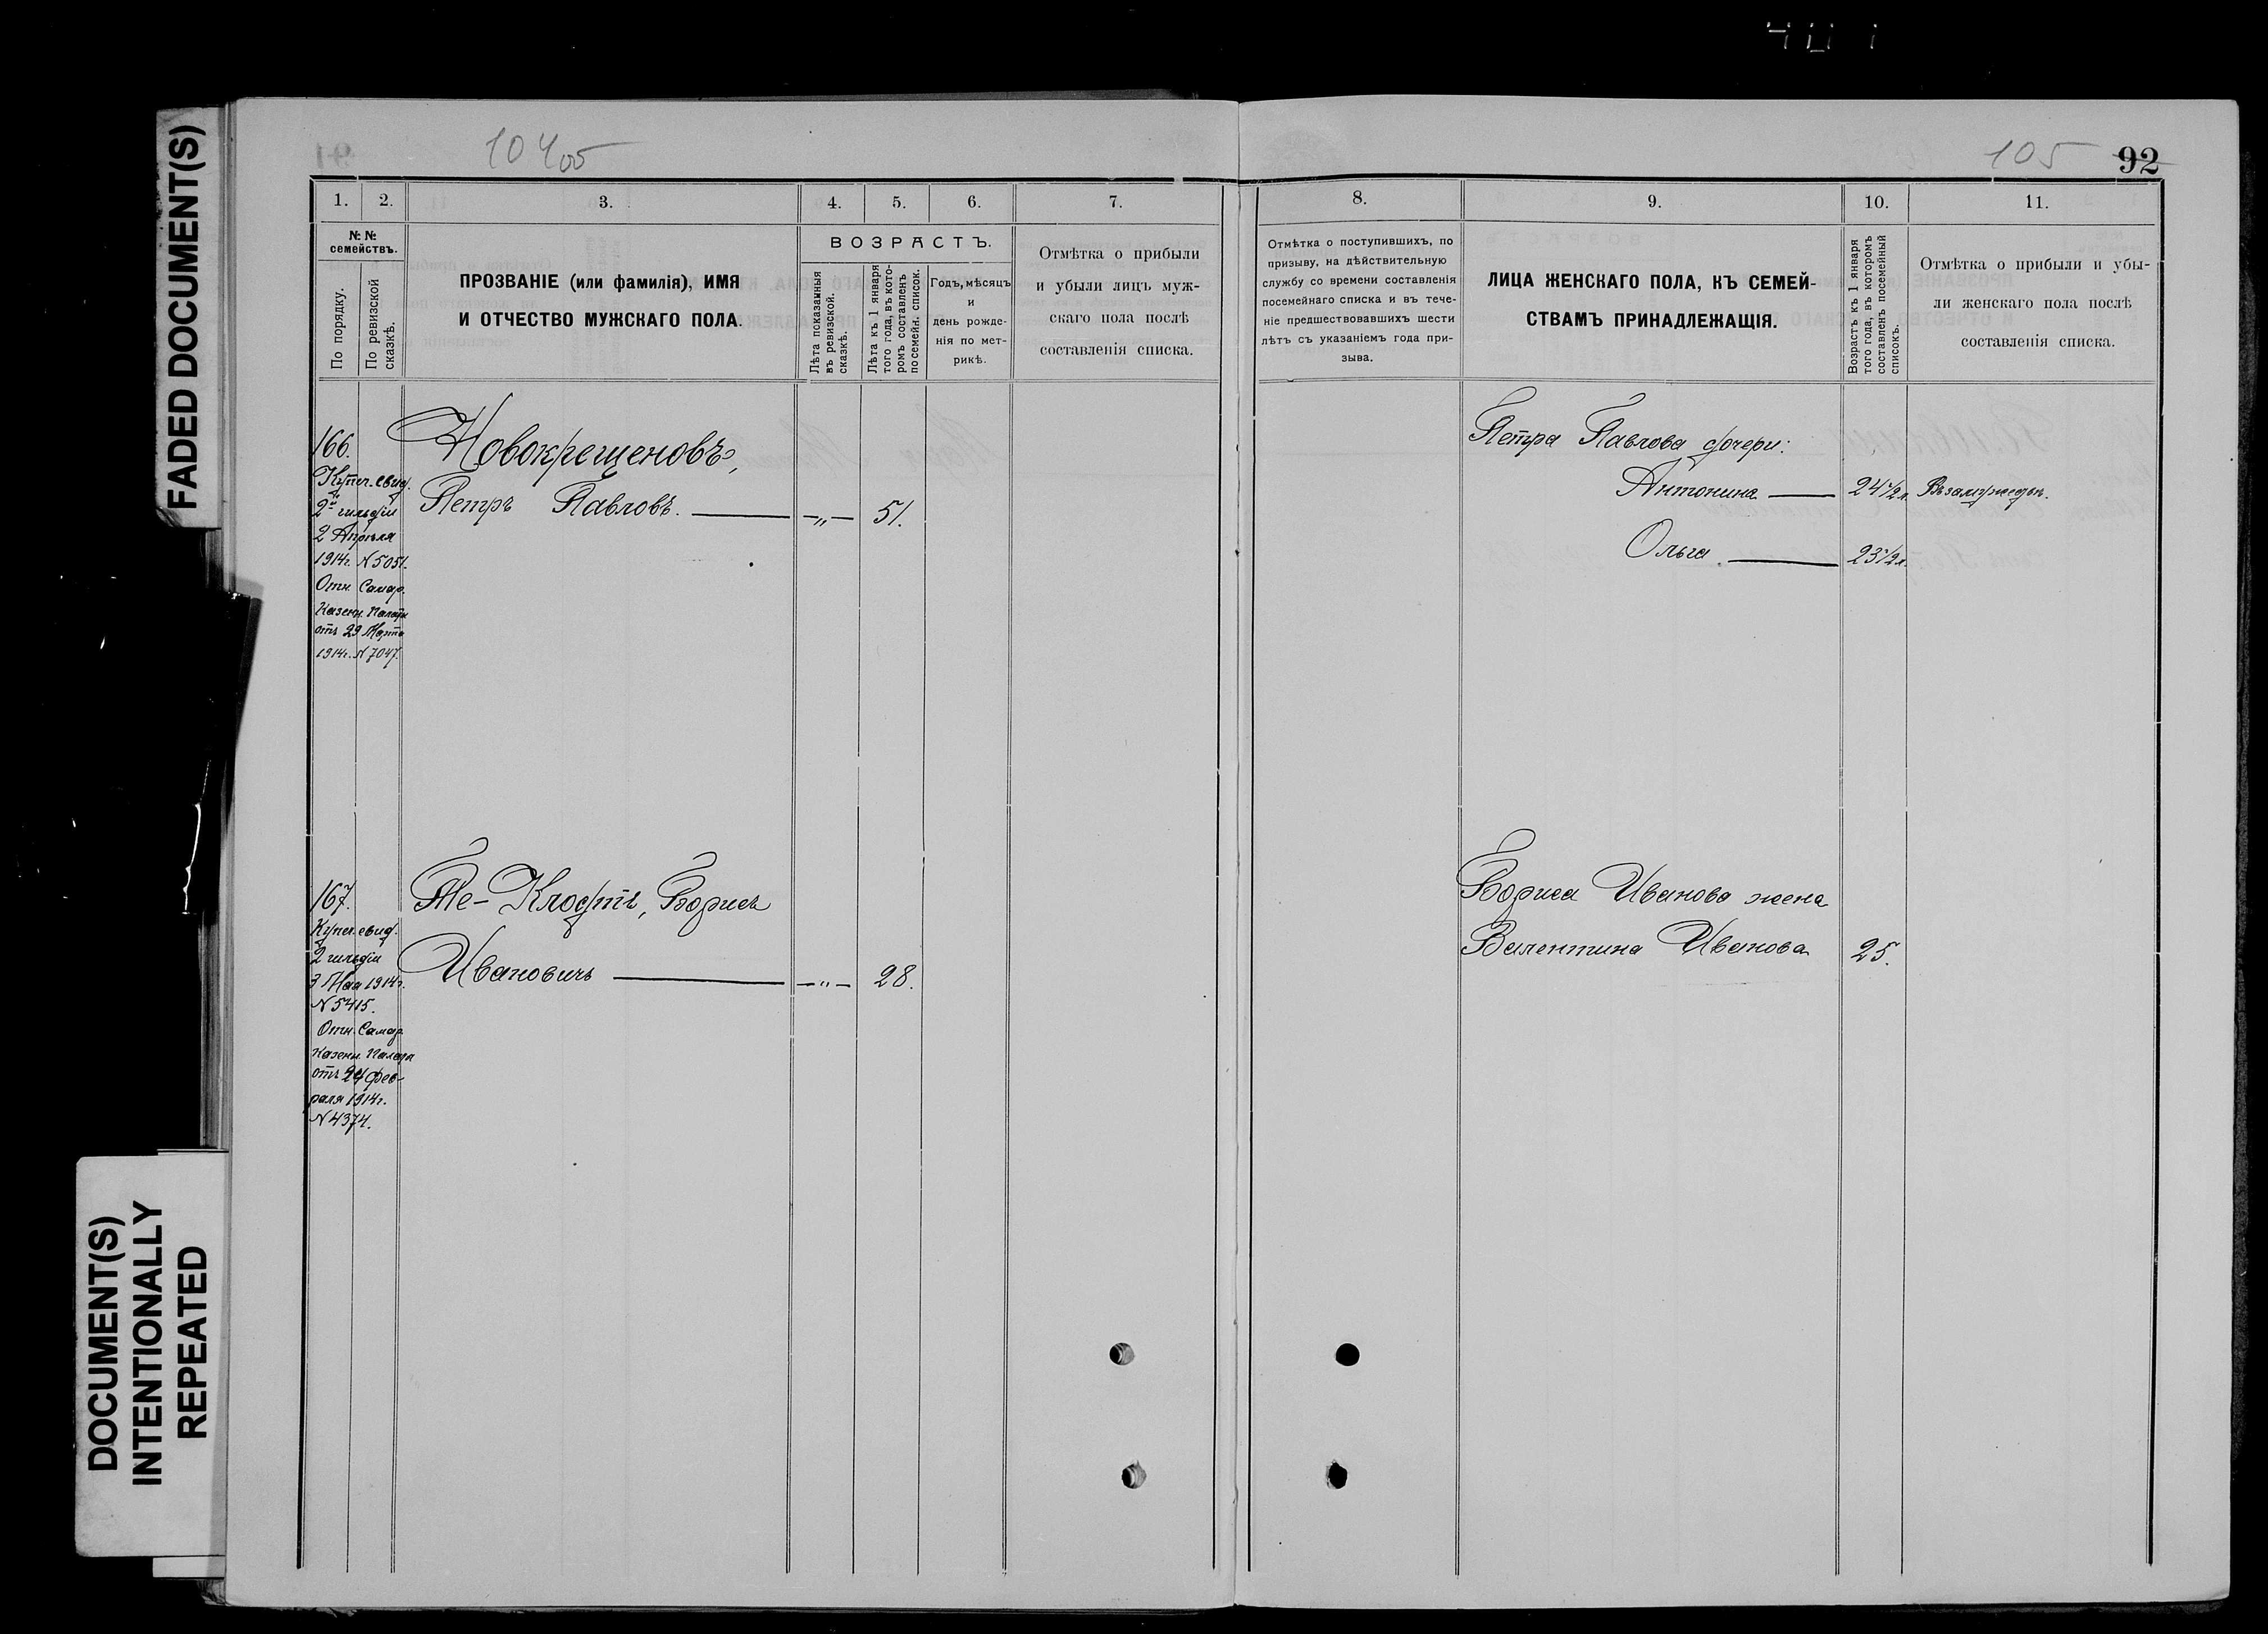 FADED DOCUMENT(S)
DOCUMENT(S)
INTENTIONALLY
REPEATED
105
92
1.
2.
3.
4.
5.
6.
7.
№ №
семействъ.
По порядку.
По ревизской
сказкѣ.
ПРОЗВАНІЕ (или фамилія), ИМЯ
И ОТЧЕСТВО МУЖСКАГО ПОЛА.
ВОЗРАСТЪ.
Лѣта показанныя
въ ревизской.
сказкѣ.
Лѣта къ 1 января
того года, въ кото-
ромъ составленъ
посемейн. список.
Годъ, мѣсяцъ
и
день рожде-
нія по мет-
рикѣ.
Отмѣтка о прибыли
и убыли лицъ муж-
скаго пола послѣ
составленія списка.
166.
Купеч. свид.
2й гильдіи
2 Апрѣля
1914г. N 5051.
Отн. Самар.
Казенн. Палаты
отъ 29 Марта
1914г. N 7047.
Новокрещеновъ,
Петръ Павловъ. — — „ — 51.
167.
Купеч. свид.
2 гильдіи
3 Мая 1914г.
N 5415.
Отн. Самар.
Казенн. Палаты
отъ 24 фев-
раля 1914г.
N 4374.
Те-Клофтъ, Борисъ
Ивановичъ — — „ — 28.
8.
9.
10.
11.
Отмѣтка о поступившихъ, по
призыву, на дѣйствительную
службу со времени составленія
посемейнаго списка и въ тече-
ніе предшествовавшихъ шести
лѣтъ съ указаніемъ года при-
зыва.
ЛИЦА ЖЕНСКАГО ПОЛА, КЪ СЕМЕЙ-
СТВАМЪ ПРИНАДЛЕЖАЩІЯ.
Возрастъ къ 1 января
того года, въ которомъ
составленъ посемейный
списокъ.
Отмѣтка о прибыли и убы-
ли женскаго пола послѣ
составленія списка.
Петра Павлова дочери:
Антонина — 24½ л. Въ замужедѣ.
Ольга — 23½ л.
Бориса Иванова жена
Валентина Иванова 25.